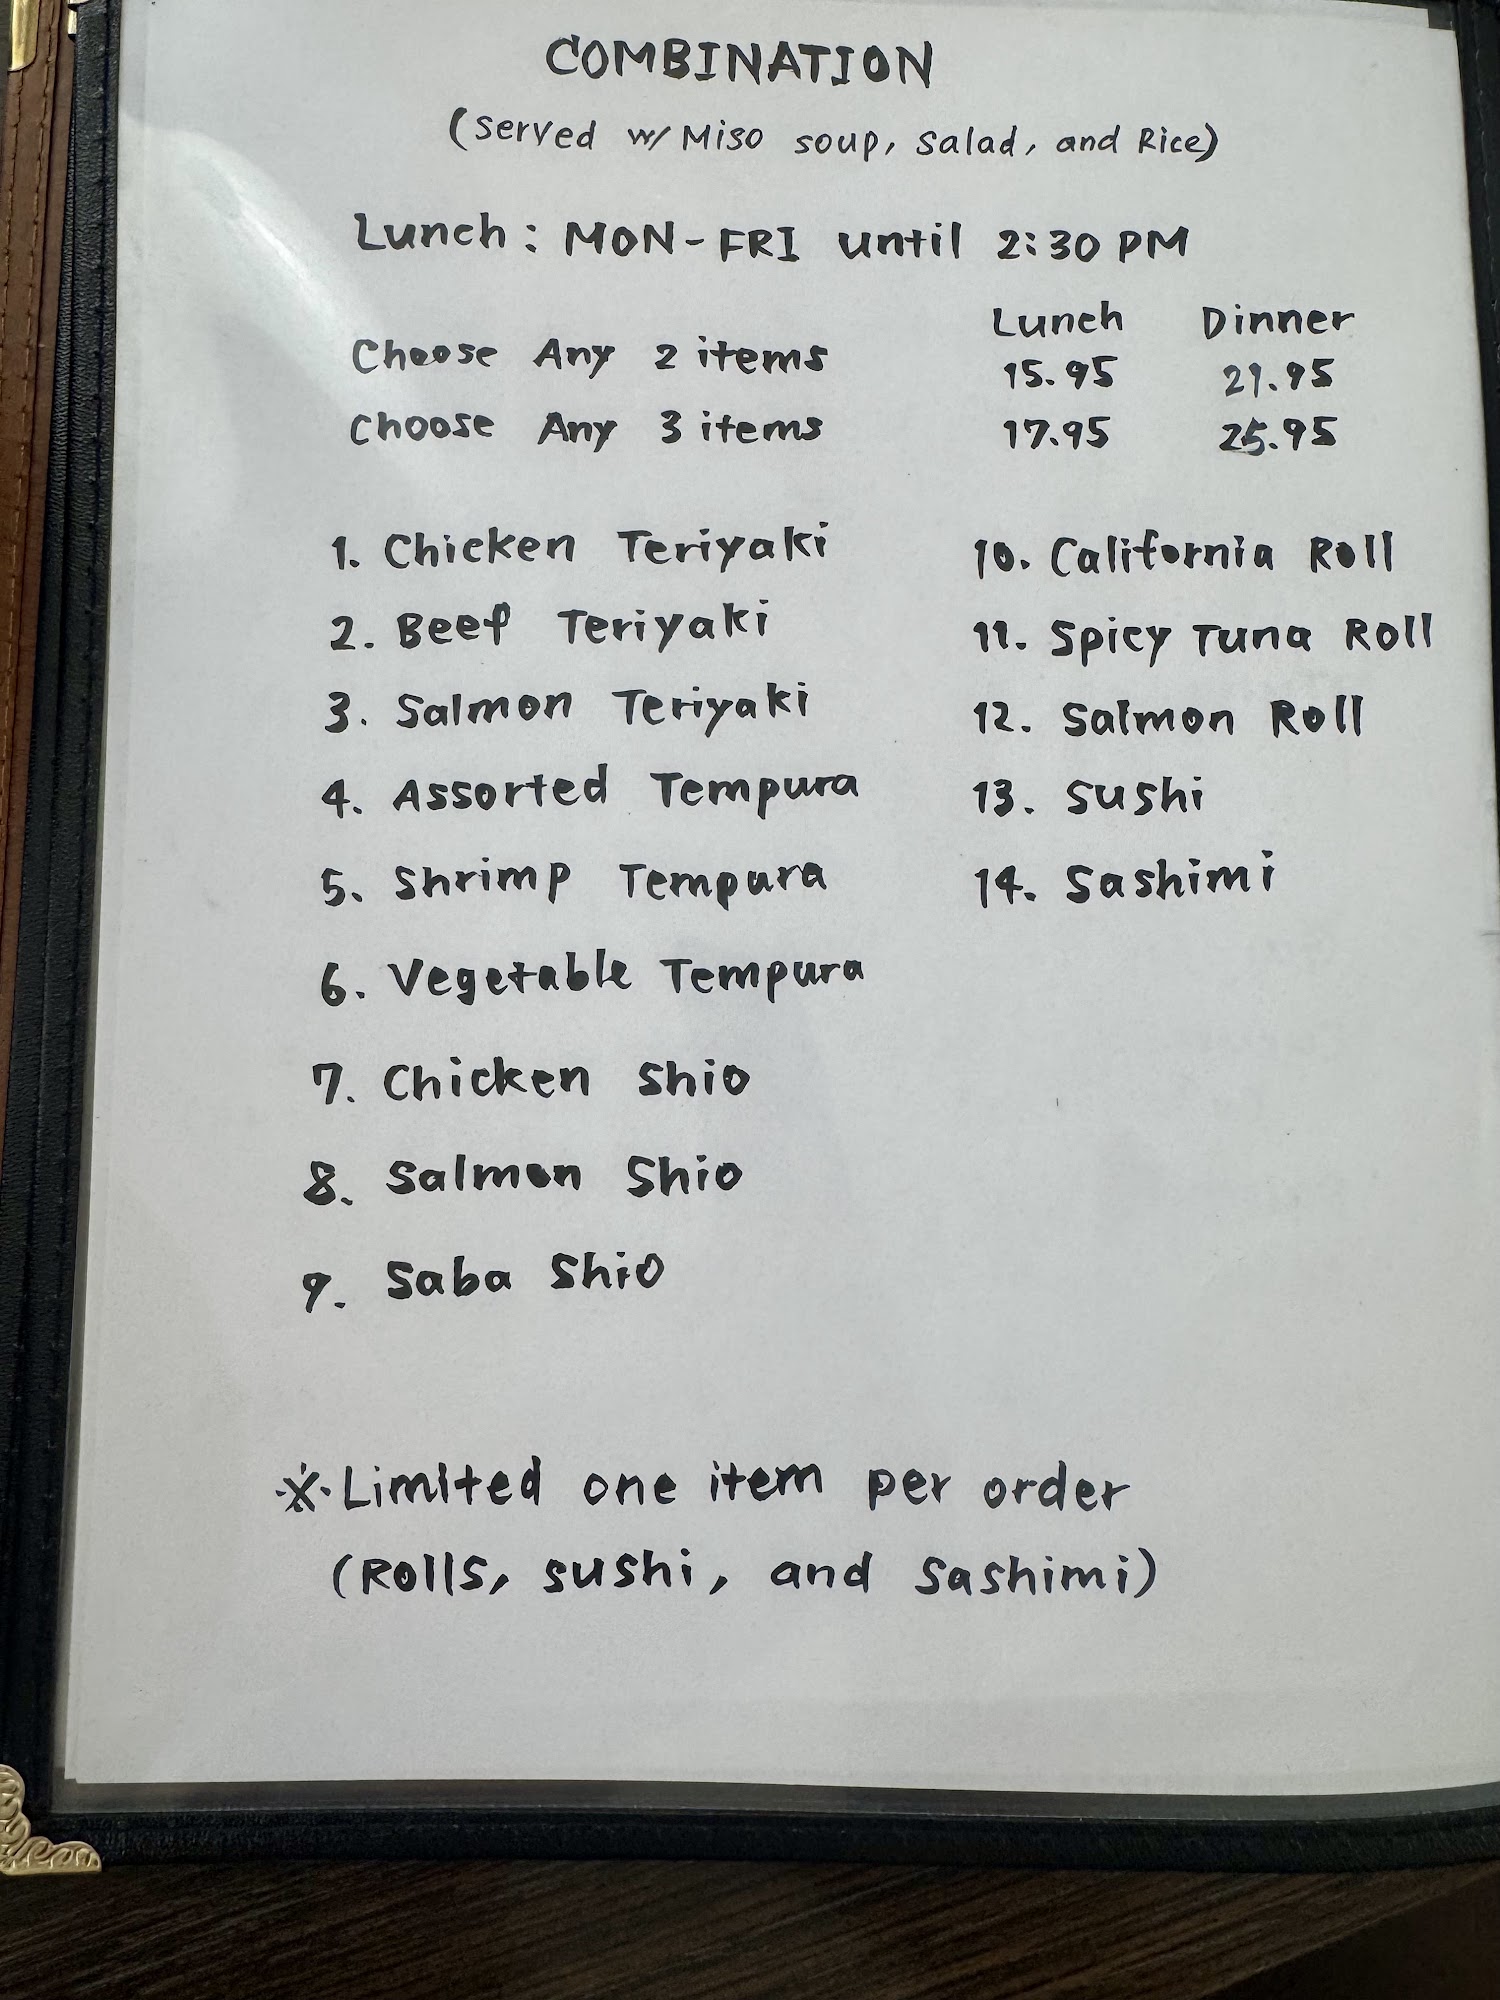 COMBINATION
(served w/ Miso soup, salad, and Rice)
Lunch: MON-FRI until 2:30 PM
Lunch Dinner
Choose Any 2 items 15.95 21.95
Choose Any 3 items 17.95 25.95
1. Chicken Teriyaki
2. Beef Teriyaki
3. Salmon Teriyaki
4. Assorted Tempura
5. Shrimp Tempura
6. Vegetable Tempura
7. Chicken Shio
8. Salmon Shio
9. Saba Shio
10. California Roll
11. Spicy Tuna Roll
12. Salmon Roll
13. Sushi
14. Sashimi
※ Limited one item per order
(Rolls, sushi, and Sashimi)